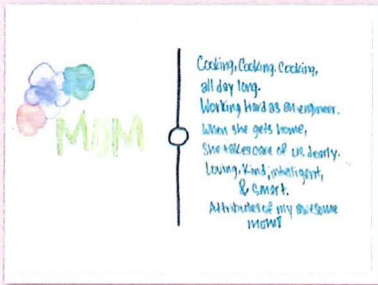 MOM
Cooking, Cooking, Cooking,
all day long.
Working Hard as an engineer.
When she gets home,
She takes care of us dearly.
Loving, Kind, intelligent,
& Smart.
Attributes of my awesome
MOM!